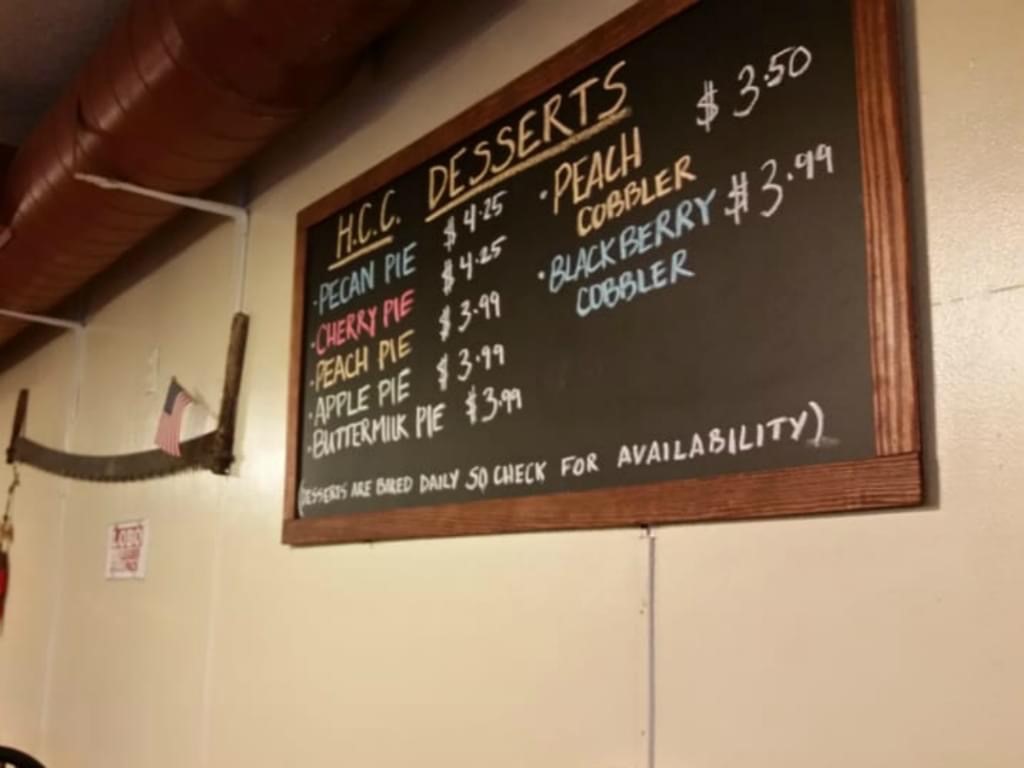 H.C.C. DESSERTS
·PECAN PIE $4.25
·CHERRY PIE $4.25
·PEACH PIE $3.99
·APPLE PIE $3.99
·BUTTERMILK PIE $3.99
·PEACH $3.50
COBBLER
·BLACKBERRY $3.99
COBBLER
(DESSERTS ARE BAKED DAILY SO CHECK FOR AVAILABILITY)